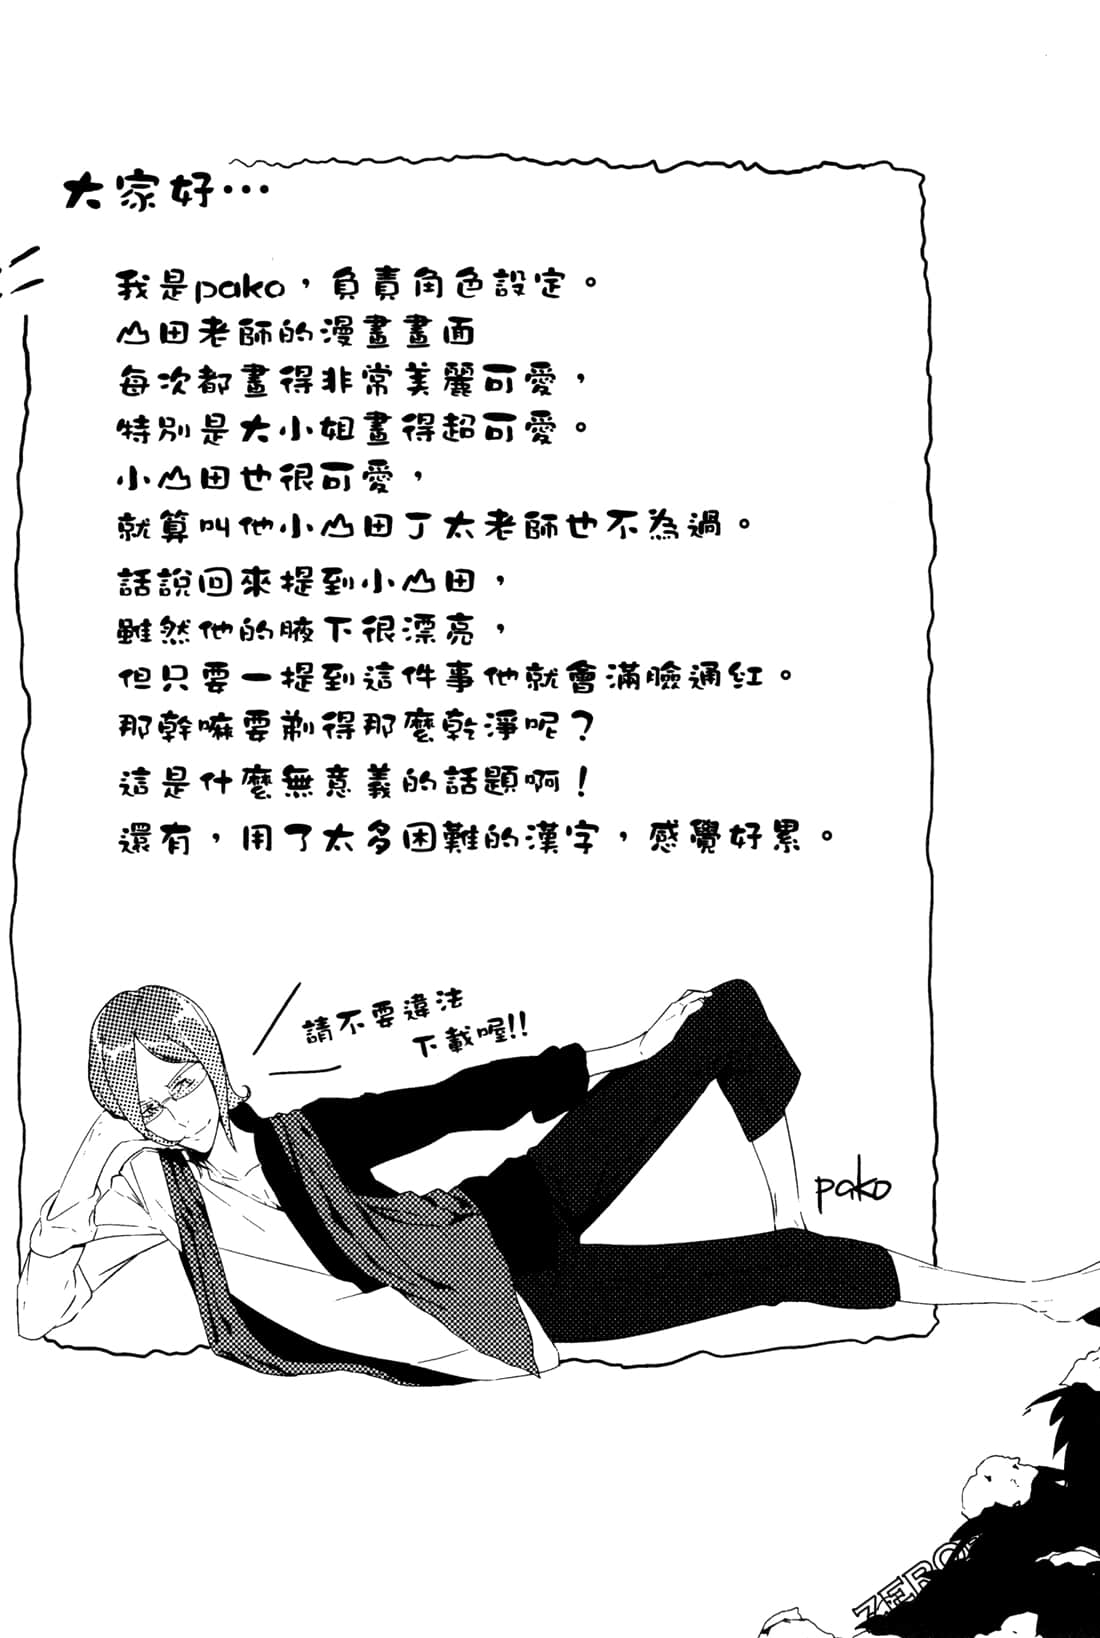 大家好…
我是pako，負責角色設定。
山田老師的漫畫畫面
每次都畫得非常美麗可愛，
特別是大小姐畫得超可愛。
小山田也很可愛，
就算叫他小山田丁太老師也不為過。
話說回來提到小山田，
雖然他的腋下很漂亮，
但只要一提到這件事他就會滿臉通紅。
那幹嘛要剃得那麼乾淨呢？
這是什麼無意義的話題啊！
還有，用了太多困難的漢字，感覺好累。
請不要違法
下載喔!!
pako
ZERO